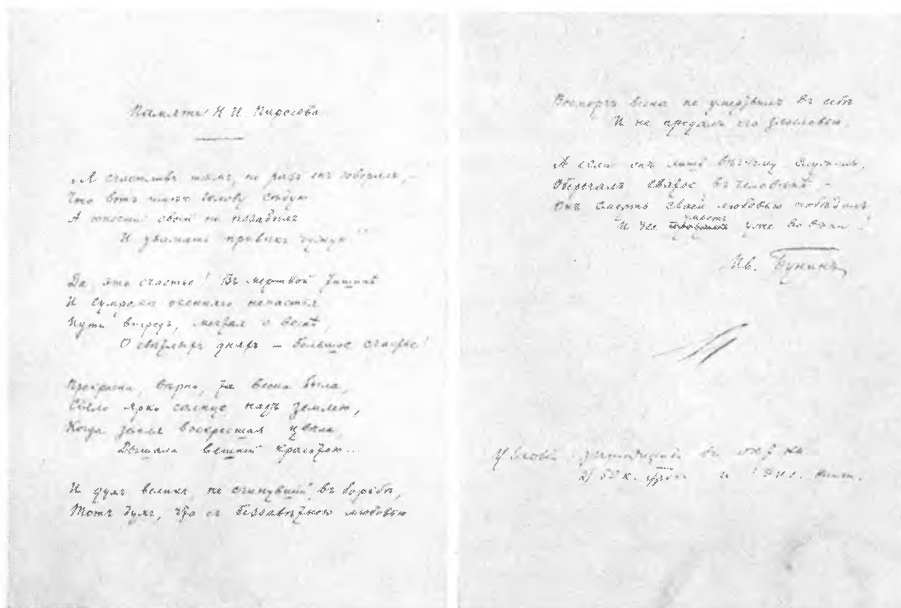 Памяти Н. И. Пирогова
„Я счастливъ тѣмъ, не разъ онъ говорилъ, –
Что вотъ имѣю голову сѣдую
А юности своей не позабылъ
И уважать привыкъ чужую“!
Да, это счастье! Въ мертвой тишинѣ
И сумракѣ осенняго ненастья
Идти впередъ, мечтая о веснѣ,
О свѣтлыхъ дняхъ – большое счастье!
Прекрасна, вѣрно, та весна была,
Сіяло ярко солнце надъ землею,
Когда земля воскресшая цвѣла,
Дышала вешней красотою...
И духъ великъ, не сгинувшій въ борьбѣ,
Тотъ духъ, что съ беззавѣтною любовью
Восторгъ весны не умертвилъ въ себѣ
И не предалъ его злословью.
А если онъ лишь вѣчному служилъ,
Оберегалъ святое въ человѣкѣ –
Онъ смерть своей любовью побѣдилъ
И не умретъ уже во вѣки!
Ив. Бунинъ
50 к.